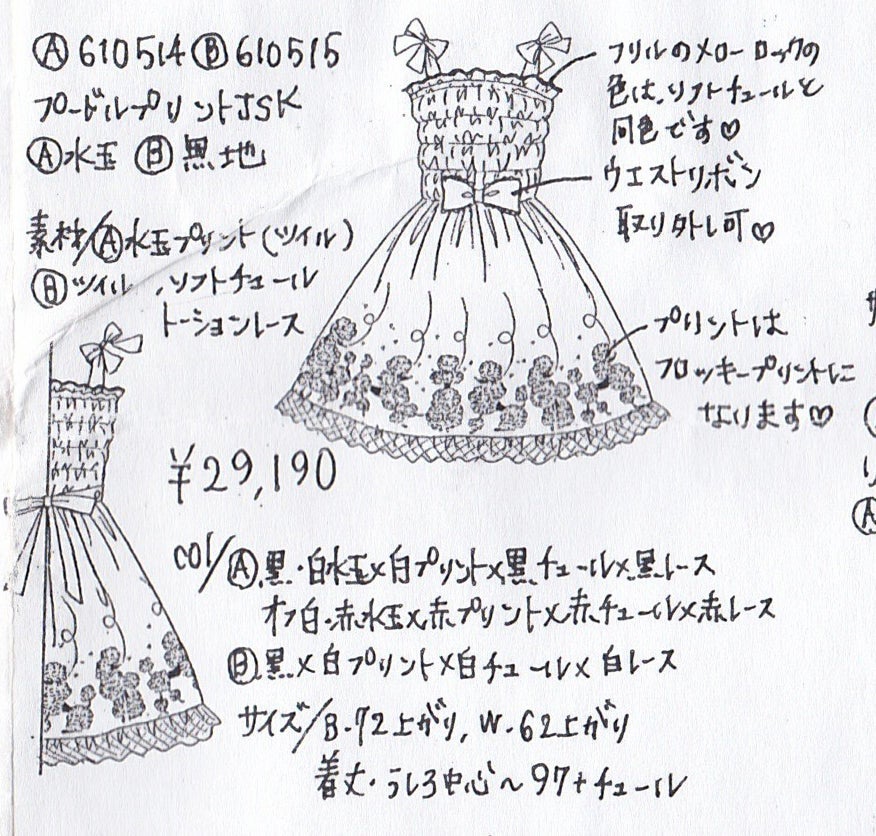 Ⓐ610514Ⓑ610515
プードルプリントJSK
Ⓐ水玉 Ⓑ黒地
素材/Ⓐ水玉プリント(ツイル)
Ⓑツイル ,ソフトチュール
トーションレース
フリルのメローロックの
色は,ソフトチュールと
同色です♡
ウエストリボン
取り外し可♡
プリントは
フロッキープリントに
なります♡
¥29,190
col/Ⓐ.黒・白水玉×白プリント×黒チュール×黒レース
オフ白・赤水玉×赤プリント×赤チュール×赤レース
Ⓑ.黒×白プリント×白チュール×白レース
サイズ/B-72上がり, W-62上がり
着丈・うしろ中心~97+チュール